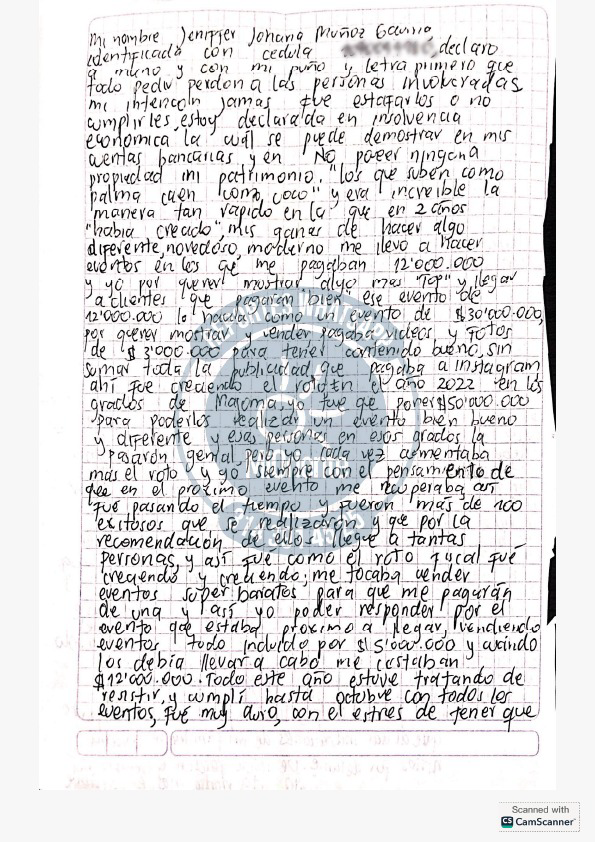 Mi nombre Jeniffer Johana Muñoz
identificada con cedula declaro
a mano y con mi puño y letra primero que
todo pedir perdon a las personas involucradas
mi intencoin jamas fue estafarlos o no
cumplirles, estoy declarada en insolvencia
economica, la cual se puede demostrar en mis
cuentas bancarias y en NO poeer ninguna
propiedad ini patrimonio. "los que suben como
palma caen como coco" y era increible la
manera tan rapido en la que en 2 años
"habia creado", mis ganas de hacer algo
diferente, novedoso, moderno me llevo a hacer
eventos en los que me pagaban 12'000.000
y yo por querer mostrar algo mas "Top" y llegar
a clientes que "pagaran bien" ese evento de
12'000.000 lo hacia como un evento de $30'000.000,
por querer mostrar y vender pagaba videos y fotos
de $3'000.000 para tener contenido bueno, sin
sumar toda la publicidad que pagaba a instagram
ahi fue creciendo el roto En el año 2022 en los
grados de yo tuve que poner $50'000.000
para poderlos realizar un evento bien bueno
y diferente y esas personas en esos grados la
pasaron genial pero yo cada vez aumentaba
más el roto y yo siempre con el pensamiento de
que en el proximo evento me recuperaba asi
fue pasando el tiempo y fueron mas de 100
exitosos que se realizarón y que por la
recomendación de ellos llegue a tantas
personas, y así fue como el roto fiscal fué
creciendo y creciendo; me tocaba vender
eventos super baratos para que me pagarán
de una y así yo poder responder por el
evento que estaba proximo a llegar, vendiendo
eventos todo incluido por $5'000.000 y cuando
los debía llevar a cabo me costaban
$12'000.000. Todo este año estuve tratando de
resistir, y cumpli hasta octubre con todos los
eventos, fué muy duro, con el estres de tener que
Scanned with
CS CamScanner